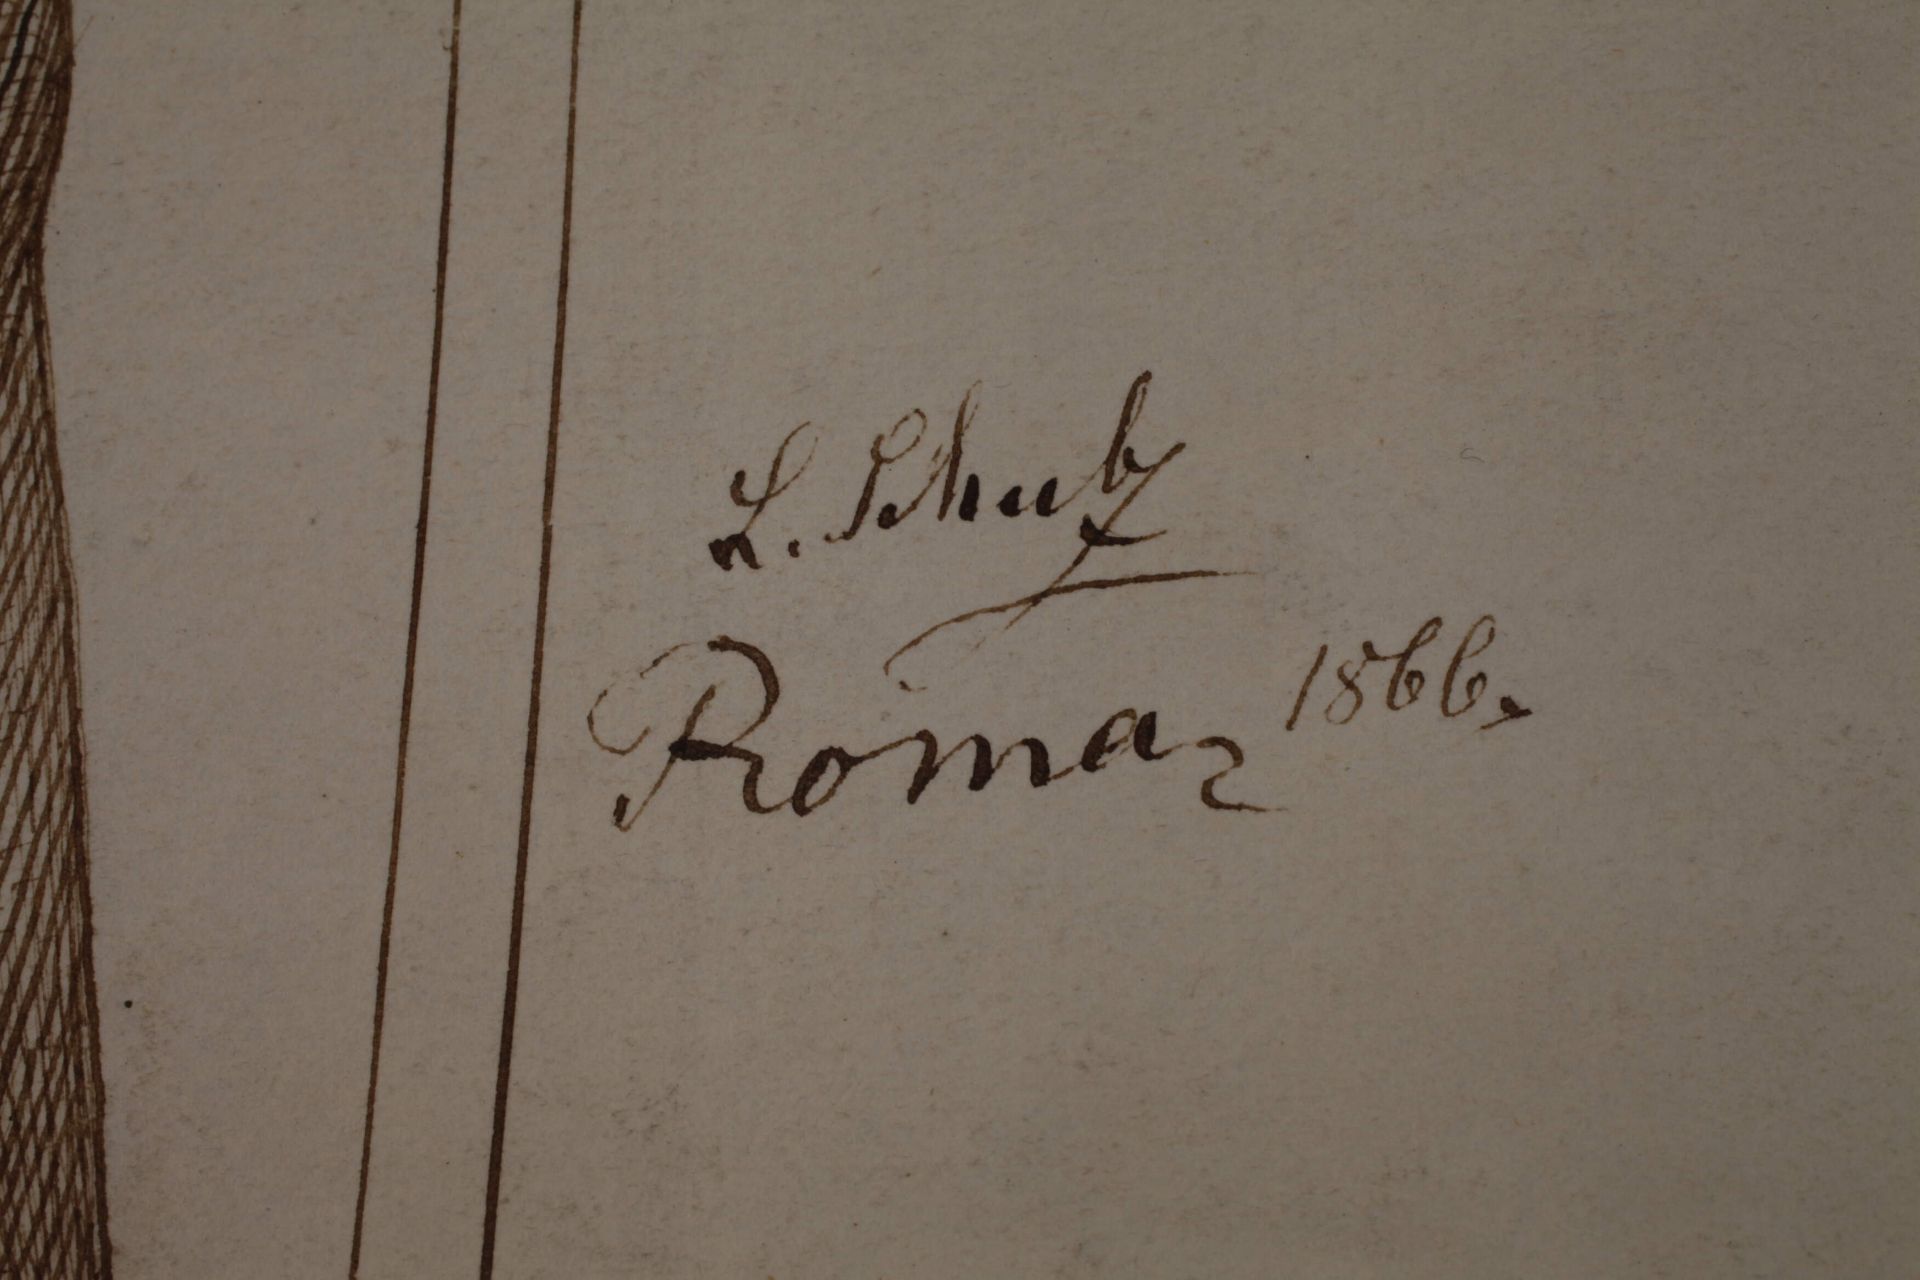 L. Schulz
Roma 1866.